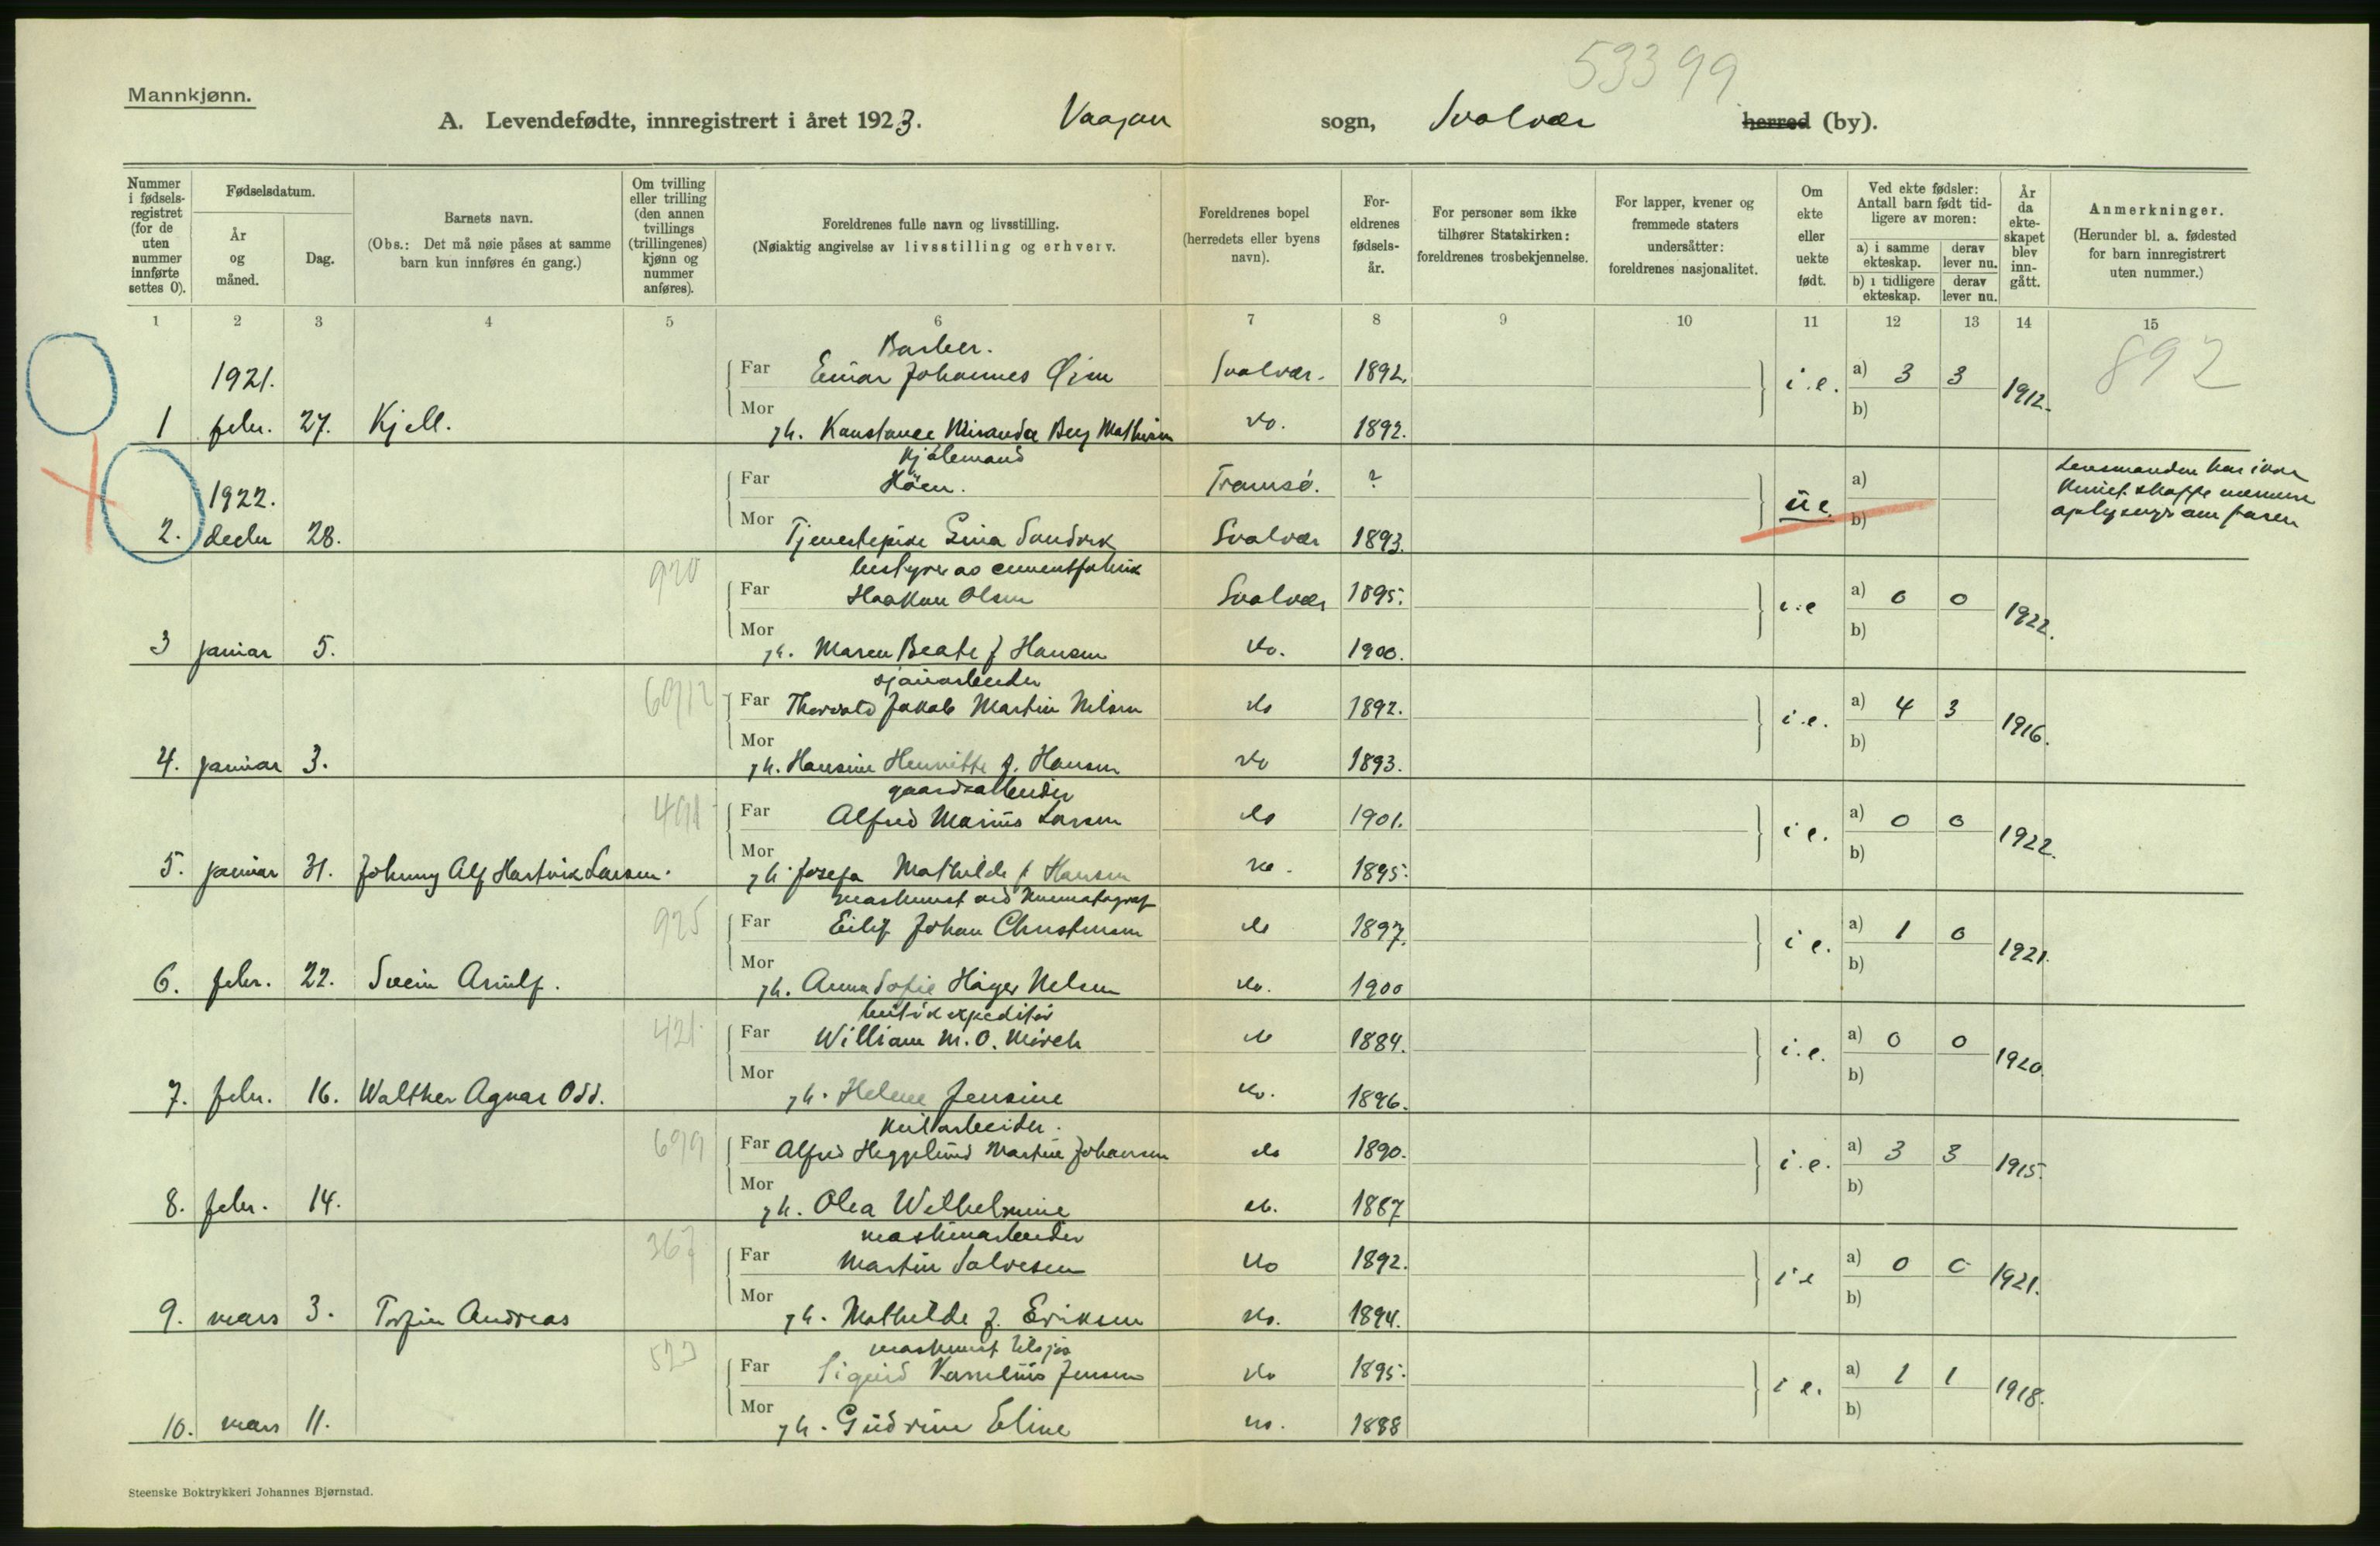 53399
Mannkjønn.
A. Levendefødte, innregistrert i året 1923. Vaagan sogn, Svolvær herred (by).
Nummer i fødsels-registret (for de uten nummer innførte settes 0).
Fødselsdatum.
År og måned.
Dag.
Barnets navn.
(Obs.: Det må nøie påses at samme barn kun innføres én gang.)
Om tvilling eller trilling (den annen tvillings (trillingenes) kjønn og nummer anføres).
Foreldrenes fulle navn og livsstilling.
(Nøiaktig angivelse av livsstilling og erhverv.
Foreldrenes bopel (herredets eller byens navn).
For-eldrenes fødsels-år.
For personer som ikke tilhører Statskirken: foreldrenes trosbekjennelse.
For lapper, kvener og fremmede staters undersåtter: foreldrenes nasjonalitet.
Om ekte eller uekte født.
Ved ekte fødsler: Antall barn født tid-ligere av moren:
a) i samme ekteskap.
derav lever nu.
b) i tidligere ekteskap.
derav lever nu.
År da ekte-skapet blev inn-gått.
Anmerkninger.
(Herunder bl. a. fødested for barn innregistrert uten nummer.)
1 2 3 4 5 6 7 8 9 10 11 12 13 14 15
Barber.
1921. Far Einar Johannes Øien Svolvær. 1892. i.e. a) 3 3 1912. 892
1 febr. 27. Kjell. Mor gh. Konstance Miranda Berg Mathisen do. 1892. b)
Kjølemand
1922. Far Høen. Tromsø. ? u e. a) Lensmanden har ikke
kunnet skaffe nærmere
oplysnigr om faren
2. decbr 28. Mor Tjenestepike Gina Sandvik Svolvær 1893. b)
920 bestyrer av cementfabrik
Far Haakon Olsen Svolvær 1895. i.e a) 0 0 1922.
3 januar 5. Mor gh. Maren Beate f Hansen do. 1900. b)
sjauarbeider
Far Thorvald Jakob Martin Nilsen do 1892. i.e. a) 4 3 1916.
4. januar 3. Mor gh. Hansine Henriette f. Hansen do 1893. b)
491 gaardsarbeider
Far Alfred Marius Larsen do 1901. i e. a) 0 0 1922.
5. januar 31. Johnny Alf Hartvik Larsen. Mor gh. Josefa Mathilde f Hansen do. 1895. b)
925 maskinist ved kinematograf
Far Eilif Johan Christensen do 1897. i e. a) 1 0 1921.
6. febr. 22. Svein Arnulf. Mor gh. Anna Sofie Høyer Nelsen do. 1900 b)
421 butikexpeditør
Far William M. O. Mörch do 1884. i.e. a) 0 0 1920.
7. febr. 16. Walther Agnar Odd. Mor gh. Helene Jensine do. 1896. b)
699 kularbeider.
Far Alfred Heggelund Martin Johansen do 1890. i.e. a) 3 3 1915.
8. febr. 14. Mor gh. Olea Wilhelmine do. 1887 b)
367 maskinarbeider
Far Martin Salvesen do 1892. i e a) 0 0 1921.
9. mars 3. Torfin Andreas Mor gh. Mathilde f. Eriksen do. 1894. b)
523 maskinist tilsjøs
Far Sigurd Kornelius Jensen do 1895. i e. a) 1 1 1918.
10. mars 11. Mor gh. Gudrun Eline do. 1888 b)
Steenske Boktrykkeri Johannes Bjørnstad.